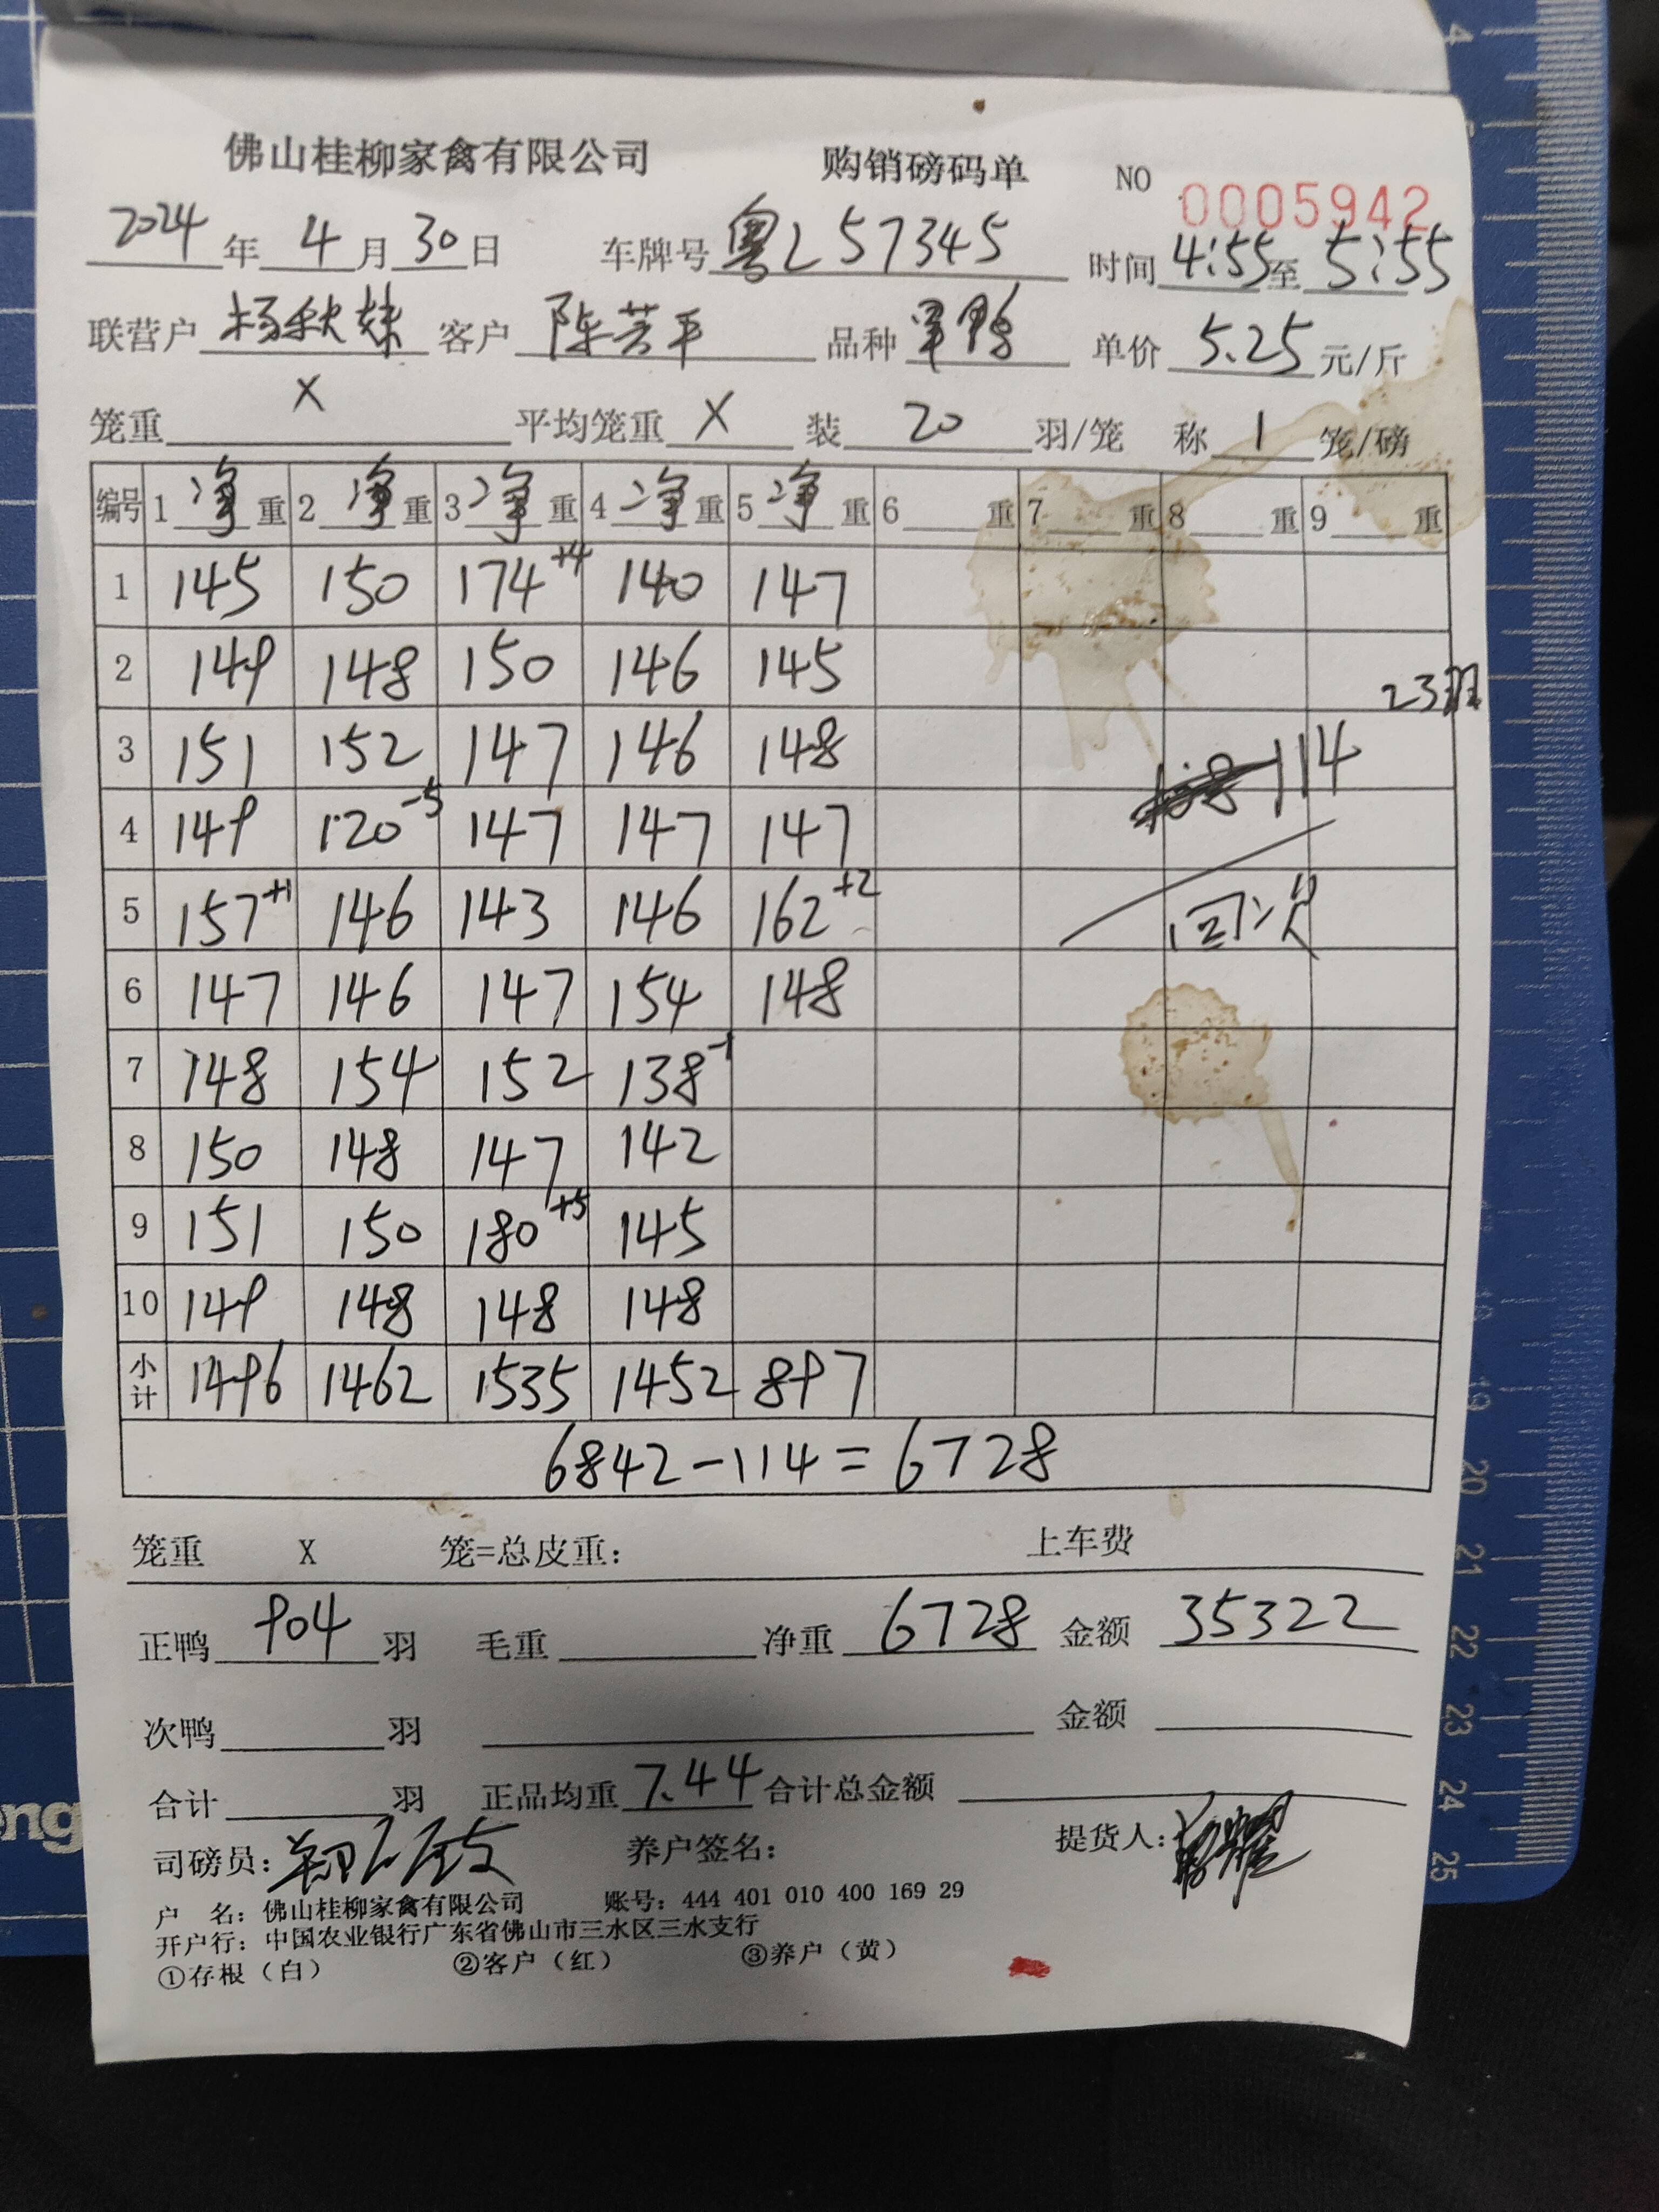 佛山桂柳家禽有限公司 购销磅码单 NO 0005942
2024年4月30日 车牌号粤L57345 时间4:55至5:55
联营户杨秋妹 客户陈芳平 品种 单价5.25元/斤
笼重X 平均笼重X 装20羽/笼 称1笼/磅
编号 1净重 2净重 3净重 4净重 5净重 6重 7重 8重 9重
1 145 150 174+4 140 147
2 149 148 150 146 145
23班
3 151 152 147 146 148
114
4 149 120-5 147 147 147
5 157+1 146 143 146 162+2
回次
6 147 146 147 154 148
7 148 154 152 138-1
8 150 148 147 142
9 151 150 180+5 145
10 149 148 148 148
小计 1496 1462 1535 1452 897
6842-114=6728
笼重 X 笼=总皮重: 上车费
正鸭904羽 毛重 净重6728 金额35322
次鸭 羽 金额
合计 羽 正品均重7.44 合计总金额
司磅员: 养户签名: 提货人:
户 名: 佛山桂柳家禽有限公司 账号: 444 401 010 400 169 29
开户行: 中国农业银行广东省佛山市三水区三水支行
①存根(白) ②客户(红) ③养户(黄)
ng
4
19
20
21
22
23
24
25